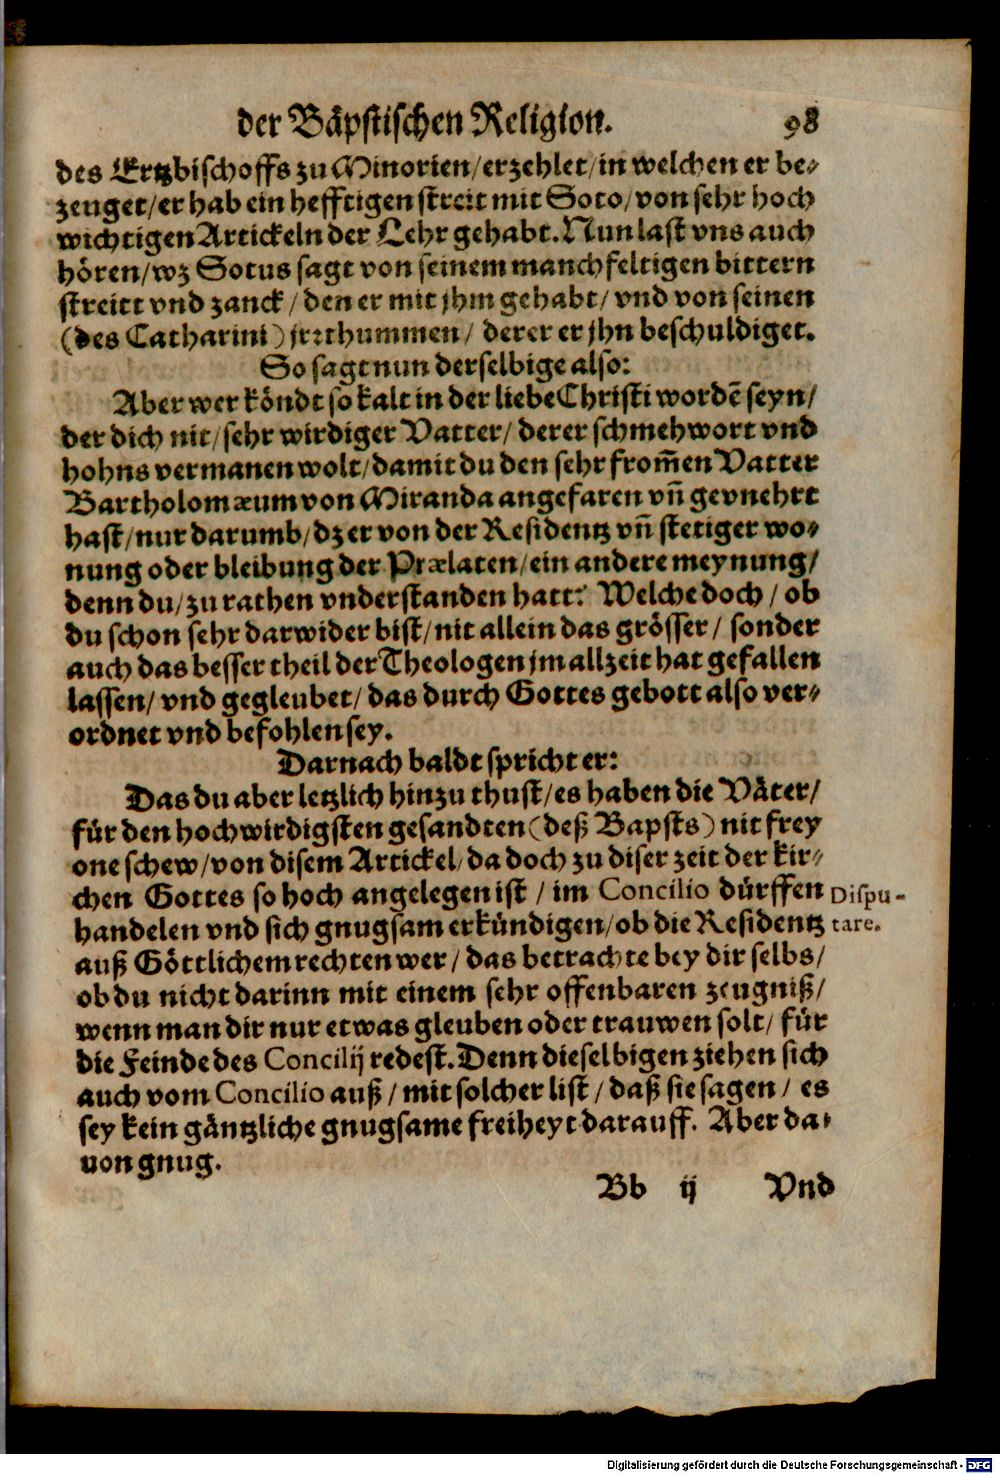 der Bäpstischen Religion. 98
des Ertzbischoffs zu Minorien/erzehlet/in welchen er be-
zeuget/er hab ein hefftigen streit mit Soto/von sehr hoch
wichtigen Artickeln der Lehr gehabt. Nun last vns auch
hören/wz Sotus sagt von seinem manchfeltigen bittern
streitt vnd zanck/den er mit jhm gehabt/vnd von seinen
(des Catharini) jrrthummen/ derer er jhn beschuldiget.
So sagt nun derselbige also:
Aber wer köndt so kalt in der liebe Christi wordẽ seyn/
der dich nit/sehr wirdiger Vatter/ derer schmehwort vnd
hohns vermanen wolt/damit du den sehr from̃en Vatter
Bartholomæum von Miranda angefaren vñ gevnehrt
hast/nur darumb/dz er von der Residentz vñ stetiger wo-
nung oder bleibung der Prælaten/ein andere meynung/
denn du/zu rathen vnderstanden hatt: Welche doch/ ob
du schon sehr darwider bist/nit allein das grösser/ sonder
auch das besser theil der Theologen jm allzeit hat gefallen
lassen/ vnd gegleubet/ das durch Gottes gebott also ver-
ordnet vnd befohlen sey.
Darnach baldt spricht er:
Das du aber letzlich hinzu thust/es haben die Väter/
für den hochwirdigsten gesandten (deß Bapsts) nit frey
one schew/von disem Artickel/da doch zu diser zeit der kir-
chen Gottes so hoch angelegen ist / im Concilio dürffen
handelen vnd sich gnugsam erkündigen/ob die Residentz
auß Göttlichem rechten wer/ das betrachte bey dir selbs/
ob du nicht darinn mit einem sehr offenbaren zeugniß/
wenn man dir nur etwas gleuben oder trauwen solt/ für
die Feinde des Concilij redest. Denn dieselbigen ziehen sich
auch vom Concilio auß/ mit solcher list/ daß sie sagen/ es
sey kein gäntzliche gnugsame freiheyt darauff. Aber da-
uon gnug.
Dispu-
tare.
Bb ij Vnd
Digitalisierung gefördert durch die Deutsche Forschungsgemeinschaft - DFG